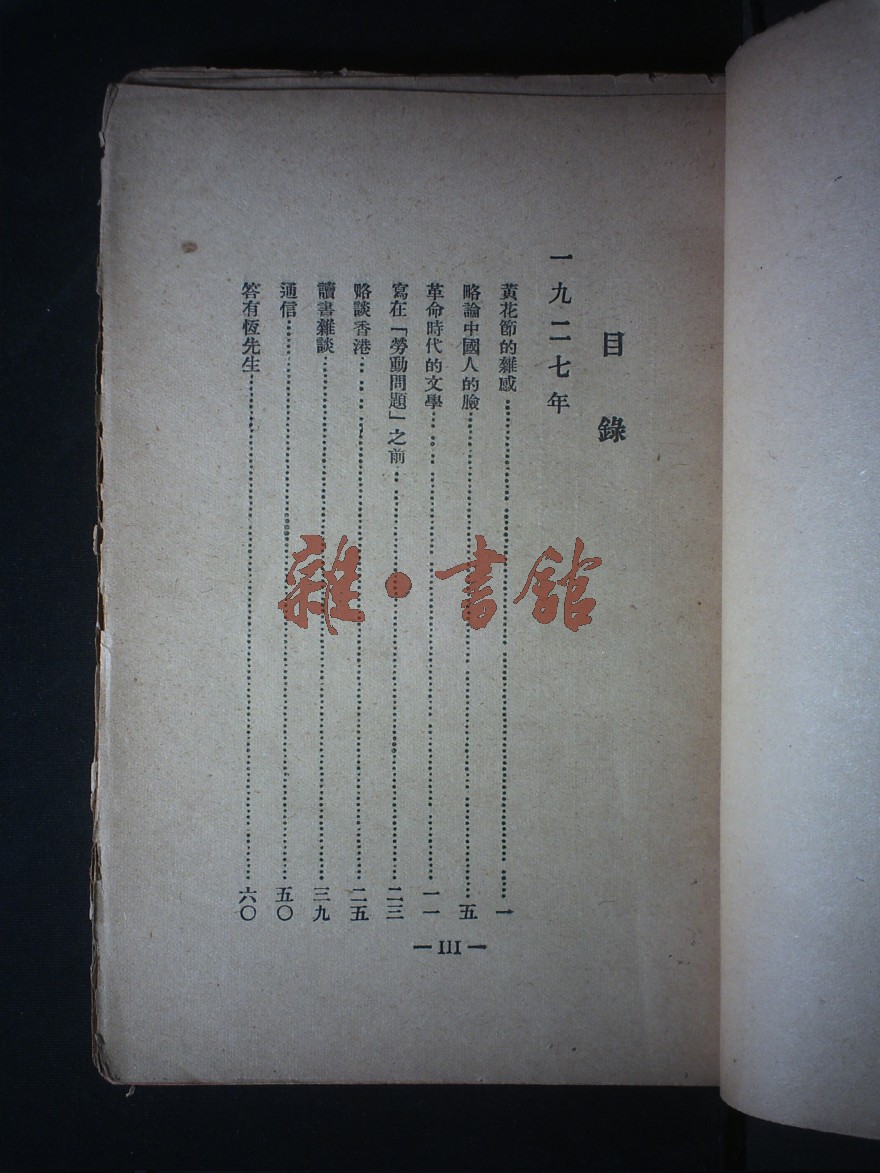 目錄
一九二七年
黃花節的雜感……一
略論中國人的臉……五
革命時代的文學……一一
寫在「勞動問題」之前……二三
略談香港……二五
讀書雜談……三九
通信……五〇
答有恆先生……六〇
— III —
雜·書館